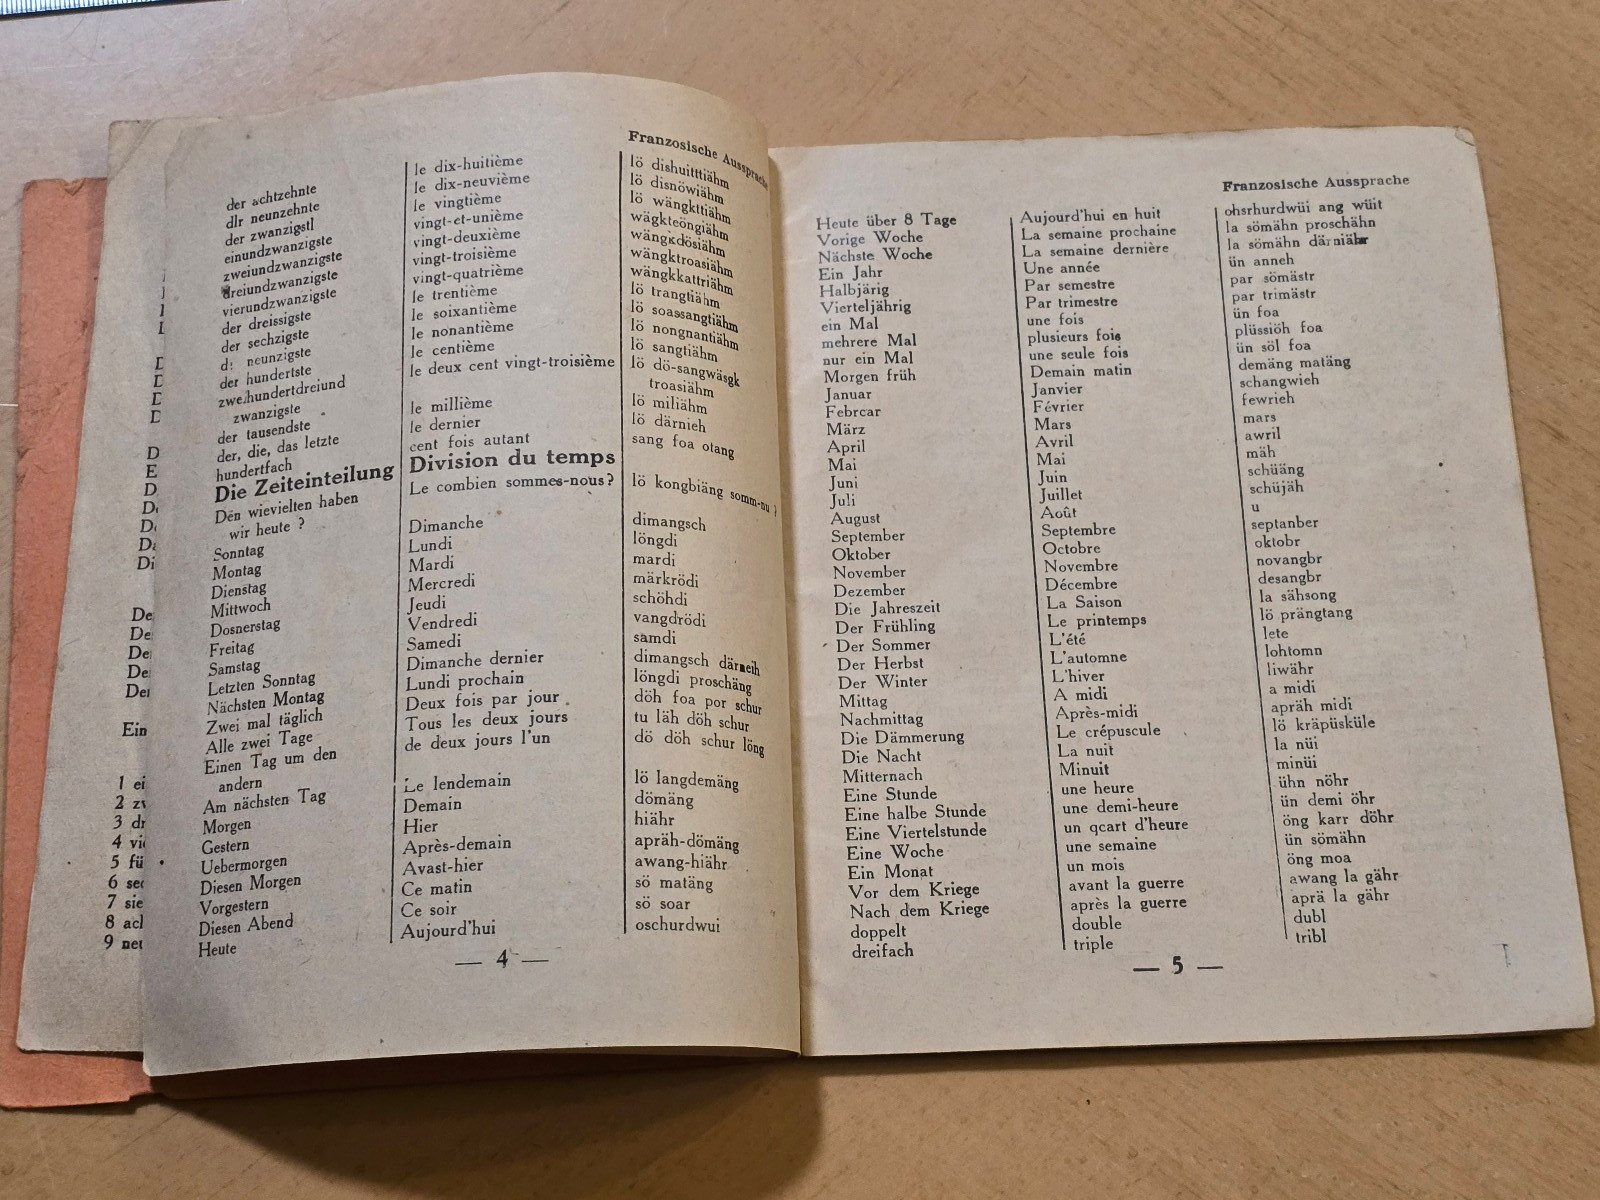 der achtzehnte
dlr neunzehnte
der zwanzigstl
einundzwanzigste
zweiundzwanzigste
dreiundzwanzigste
vierundzwanzigste
der dreissigste
der sechzigste
d: neunzigste
der hundertste
zweihundertdreiund
zwanzigste
der tausendste
der, die, das letzte
hundertfach
Die Zeiteinteilung
Den wievielten haben
wir heute ?
Sonntag
Montag
Dienstag
Mittwoch
Dosnerstag
Freitag
Samstag
Letzten Sonntag
Nächsten Montag
Zwei mal täglich
Alle zwei Tage
Einen Tag um den
andern
Am nächsten Tag
Morgen
Gestern
Uebermorgen
Diesen Morgen
Vorgestern
Diesen Abend
Heute
le dix-huitième
le dix-neuvième
le vingtième
vingt-et-unième
vingt-deuxième
vingt-troisième
vingt-quatrième
le trentième
le soixantième
le nonantième
le centième
le deux cent vingt-troisième
le millième
le dernier
cent fois autant
Division du temps
Le combien sommes-nous?
Dimanche
Lundi
Mardi
Mercredi
Jeudi
Vendredi
Samedi
Dimanche dernier
Lundi prochain
Deux fois par jour
Tous les deux jours
de deux jours l'un
Le lendemain
Demain
Hier
Après-demain
Avast-hier
Ce matin
Ce soir
Aujourd'hui
Franzosische Aussprache
lö dishuitttiähm
lö disnöwiähm
lö wängkttiähm
wägkteöngiähm
wängkdösiähm
wängktroasiähm
wängkkattriähm
lö trangtiähm
lö soassangtiähm
lö nongnantiähm
lö sangtiähm
lö dö-sangwäsgk
troasiähm
lö miliähm
lö därnieh
sang foa otang
lö kongbiäng somm-nu ?
dimangsch
löngdi
mardi
märkrödi
schöhdi
vangdrödi
samdi
dimangsch därneih
löngdi proschäng
döh foa por schur
tu läh döh schur
dö döh schur löng
lö langdemäng
dömäng
hiähr
apräh-dömäng
awang-hiähr
sö matäng
sö soar
oschurdwui
— 4 —
D
E
D
D
De
De
De
De
Der
Ein
1 ei
2 zv
3 dr
4 vi
5 fü
6 sec
7 sie
8 acl
9 neu
Heute über 8 Tage
Vorige Woche
Nächste Woche
Ein Jahr
Halbjärig
Vierteljährig
ein Mal
mehrere Mal
nur ein Mal
Morgen früh
Januar
Febrcar
März
April
Mai
Juni
Juli
August
September
Oktober
November
Dezember
Die Jahreszeit
Der Frühling
Der Sommer
Der Herbst
Der Winter
Mittag
Nachmittag
Die Dämmerung
Die Nacht
Mitternach
Eine Stunde
Eine halbe Stunde
Eine Viertelstunde
Eine Woche
Ein Monat
Vor dem Kriege
Nach dem Kriege
doppelt
dreifach
Aujourd'hui en huit
La semaine prochaine
La semaine dernière
Une année
Par semestre
Par trimestre
une fois
plusieurs fois
une seule fois
Demain matin
Janvier
Février
Mars
Avril
Mai
Juin
Juillet
Août
Septembre
Octobre
Novembre
Décembre
La Saison
Le printemps
L'été
L'automne
L'hiver
A midi
Après-midi
Le crépuscule
La nuit
Minuit
une heure
une demi-heure
un qcart d'heure
une semaine
un mois
avant la guerre
après la guerre
double
triple
Franzosische Aussprache
ohsrhurdwüi ang wüit
la sömähn proschähn
la sömähn därniähr
ün anneh
par sömästr
par trimästr
ün foa
plüssiöh foa
ün söl foa
demäng matäng
schangwieh
fewrieh
mars
awril
mäh
schüäng
schüjäh
u
septanber
oktobr
novangbr
desangbr
la sähsong
lö prängtang
lete
lohtomn
liwähr
a midi
apräh midi
lö kräpüsküle
la nüi
minüi
ühn nöhr
ün demi öhr
öng karr döhr
ün sömähn
öng moa
awang la gähr
aprä la gähr
dubl
tribl
— 5 —